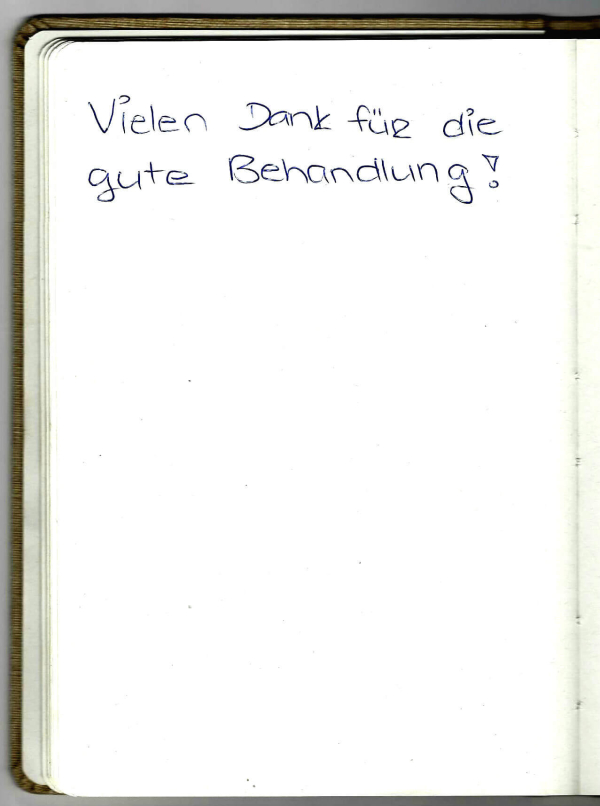 Vielen Dank für die
gute Behandlung!